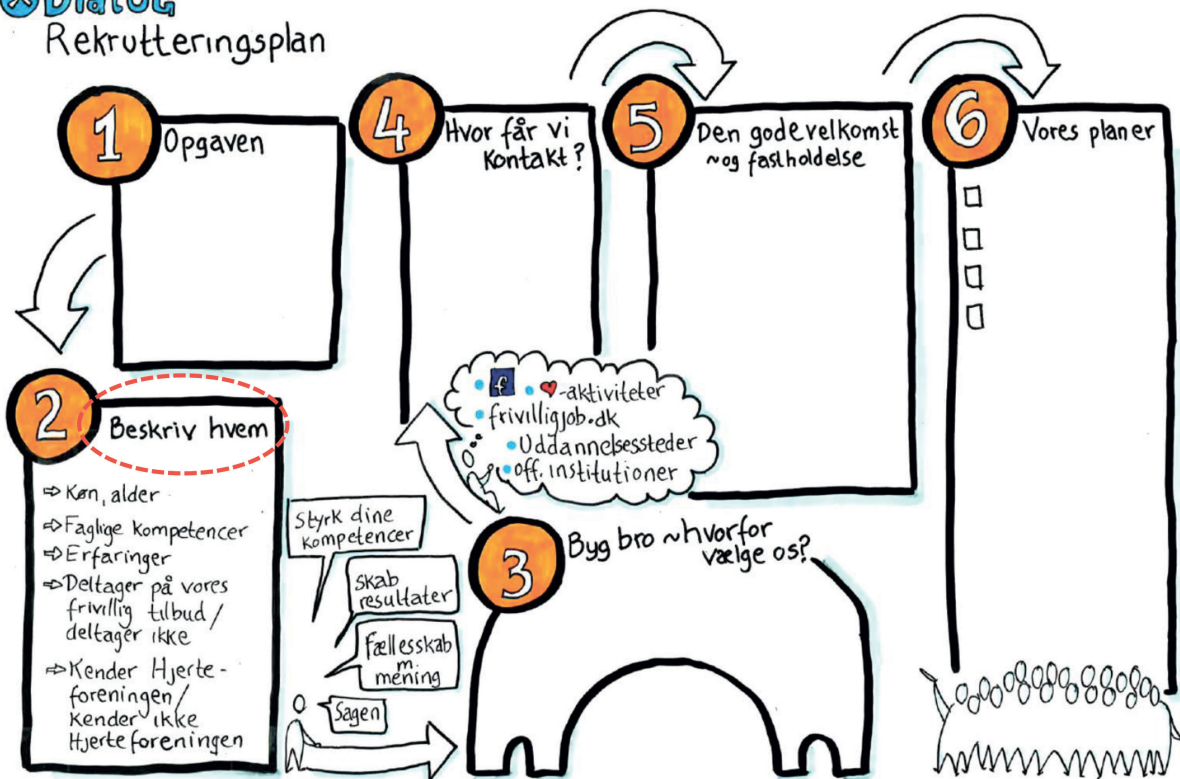 Dialog
Rekrutteringsplan
1
Opgaven
2
Beskriv hvem
⇨ Køn, alder
⇨ Faglige kompetencer
⇨ Erfaringer
⇨ Deltager på vores
frivillig tilbud /
deltager ikke
⇨ Kender Hjerte-
foreningen /
Kender ikke
Hjerteforeningen
Styrk dine
kompetencer
Skab
resultater
Fællesskab
m.
mening
Sagen
3
Byg bro ~ hvorfor
vælge os?
4
Hvor får vi
kontakt?
• f • ♥-aktiviteter
• frivilligjob.dk
• Uddannelsessteder
• off. institutioner
5
Den gode velkomst
~ og fastholdelse
6
Vores planer